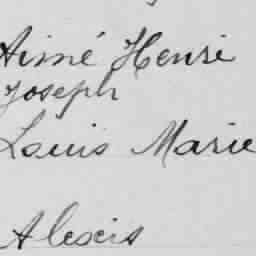 Aimé Henri
Joseph
Louis Marie
Alexis